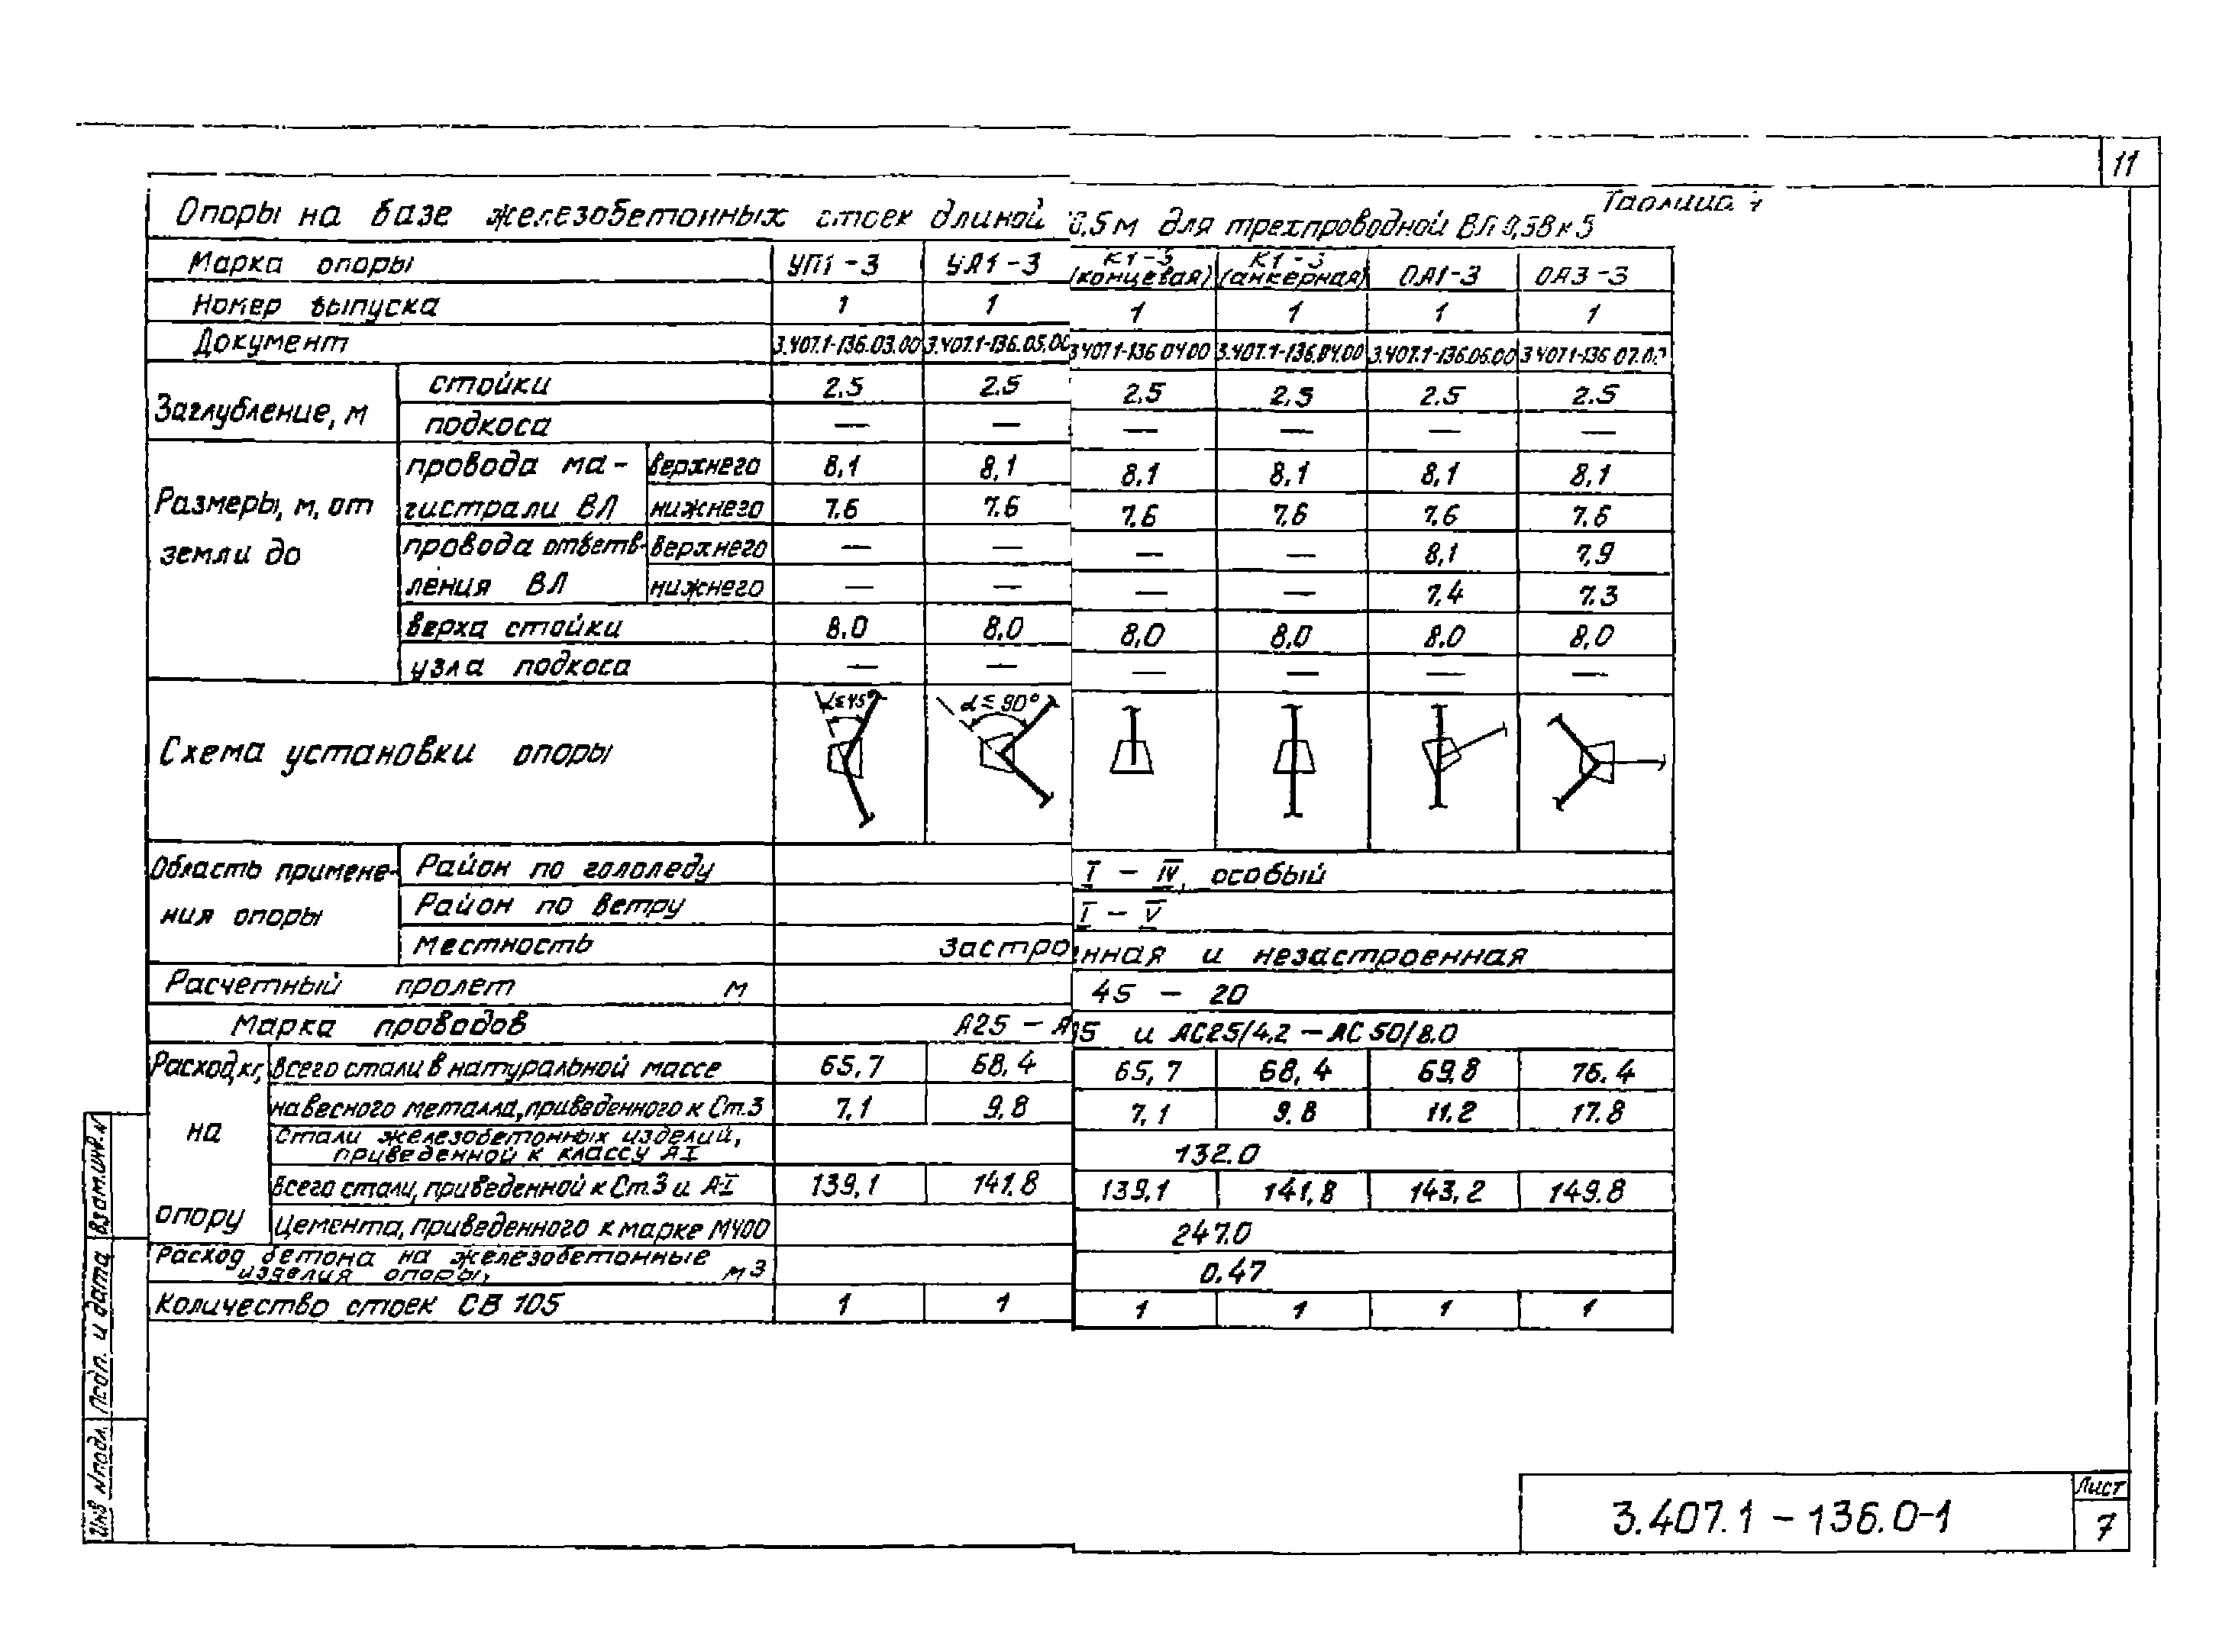 11
Опоры на базе железобетонных стоек длиной 10,5м для трехпроводной ВЛ 0,38кВ
Таблица
Марка опоры УП1-3 УА1-3 К1-3 (концевая) К1-3 (анкерная) ОА1-3 ОА3-3
Номер выпуска 1 1 1 1 1 1
Документ 3.407.1-136.03.00 3.407.1-136.05.00 3.407.1-136.04.00 3.407.1-136.04.00 3.407.1-136.06.00 3.407.1-136.07.00
Заглубление, м стойки 2.5 2.5 2.5 2.5 2.5 2.5
подкоса — — — — — —
Размеры, м, от земли до
провода магистрали ВЛ верхнего 8,1 8,1 8,1 8,1 8,1 8,1
нижнего 7.6 7.6 7.6 7.6 7.6 7.6
провода ответвления ВЛ верхнего — — — — 8,1 7,9
нижнего — — — — 7,4 7.3
верха стойки 8.0 8.0 8,0 8,0 8.0 8,0
узла подкоса — — — — — —
Схема установки опоры α≤45° α≤90°
Область применения опоры
Район по гололеду I - IV, особый
Район по ветру I - V
Местность Застроенная и незастроенная
Расчетный пролет м 45 - 20
Марка проводов А25 - А95 и АС25/4,2 - АС 50/8.0
Расход, кг, на опору
всего стали в натуральной массе 65,7 68,4 65,7 68,4 69,8 76.4
навесного металла, приведенного к Ст.3 7,1 9,8 7,1 9.8 11.2 17.8
Стали железобетонных изделий, приведенной к классу АI 132.0
Всего стали, приведенной к Ст.3 и А-I 139,1 141,8 139,1 141,8 143,2 149.8
Цемента, приведенного к марке М400 247.0
Расход бетона на железобетонные изделия опоры, м3 0.47
Количество стоек СВ 105 1 1 1 1 1 1
Взам.инв.№
Подп. и дата
Инв №подл.
3.407.1-136.0-1
Лист
7